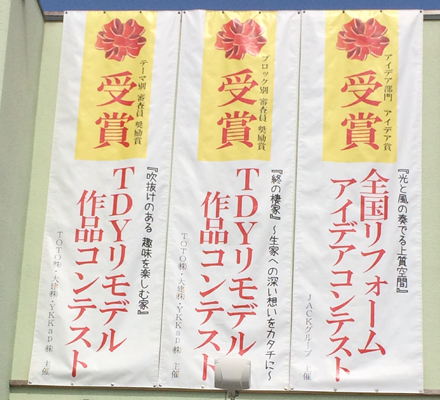 アイデア部門 アイデア賞
受賞
『光と風の奏でる上質空間』
全国リフォーム
アイデアコンテスト
JACKグループ 主催
ブロック別 審査員 奨励賞
受賞
『終の棲家』～生家への深い想いをカタチに～
TDYリモデル
作品コンテスト
TOTO㈱・大建㈱・YKKap㈱ 主催
テーマ別 審査員 奨励賞
受賞
『吹抜けのある 趣味を楽しむ家』
TDYリモデル
作品コンテスト
TOTO㈱・大建㈱・YKKap㈱ 主催